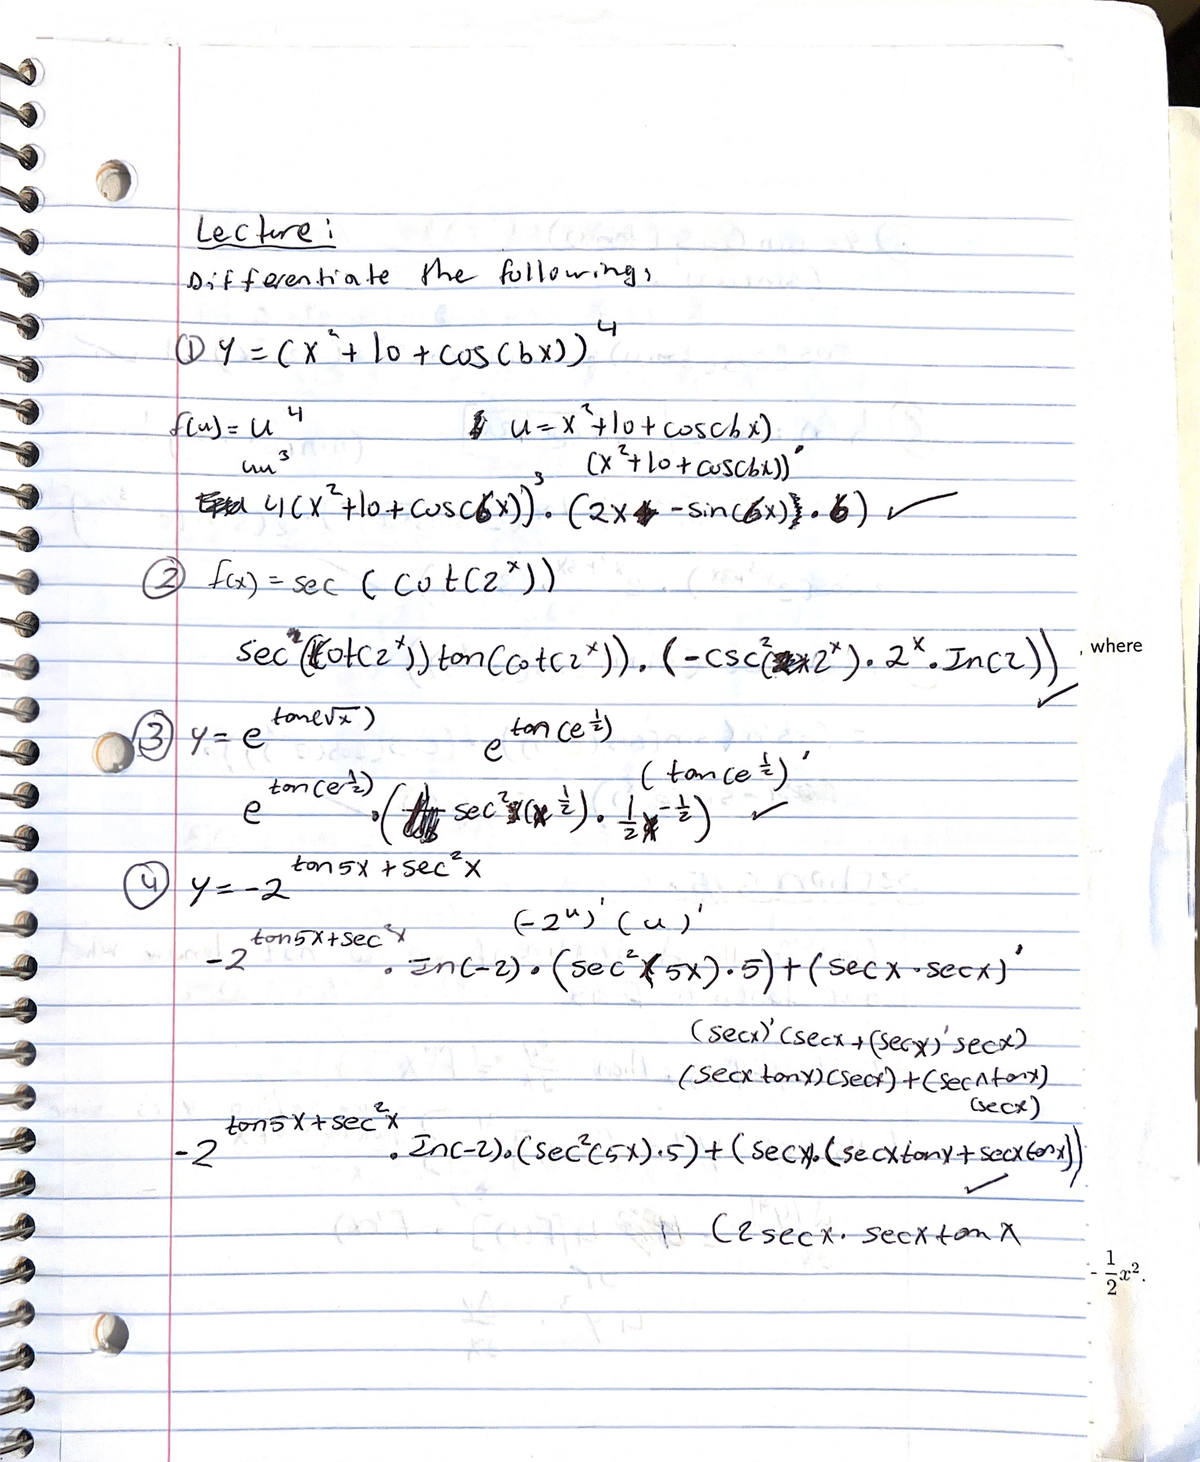 Lecture:
Differentiate the following:
① y = (x² + 10 + cos(6x))⁴
f(u) = u⁴ u = x² + 10 + cos(6x)
4u³ (x² + 10 + cos(6x))'
4(x² + 10 + cos(6x))³ · (2x - sin(6x) · 6) ✓
② f(x) = sec (cot(2ˣ))
sec (cot(2ˣ)) tan(cot(2ˣ)) · (-csc²(2ˣ) · 2ˣ · In(2)) ✓
, where
③ y = e^tan(√x) e^tan(e^½)
(tan(e^½)'
e^tan(e^½) · (sec²(x^½) · ½x^-½) ✓
④ y = -2^tan5x + sec²x
(-2ᵘ)' (u)'
-2^tan5x + sec²x · In(-2) · (sec²(5x) · 5) + (secx · secx)'
(secx)' (secx + (secx)' secx)
(secx tanx)(secx) + (secx tanx)
(secx)
-2^tan5x + sec²x · In(-2) · (sec²(5x) · 5) + (secx · (secxtanx + secxtanx)) ✓
(2secx · secxtanx
- ½x².